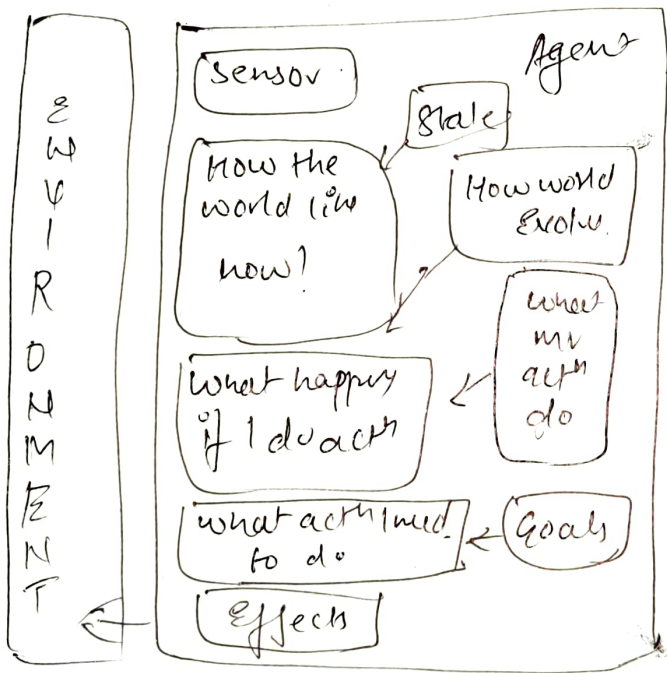 ENVIRONMENT
Agent
Sensor
State
How the
world like
now?
How world
Evolv.
What
my
actn
do
What happens
if I do actn
What actn I need
to do
Goals
Effects